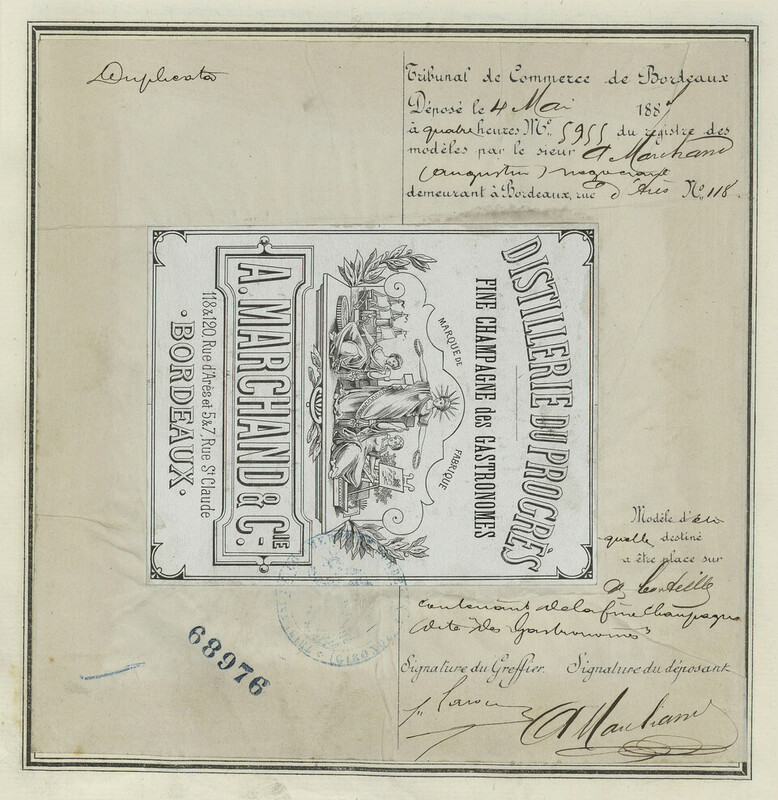 Duplicata
Tribunal de Commerce de Bordeaux
Déposé le 4 Mai 188
à quatre heures No. 5955 du registre des
modèles par le sieur A Marchand
(Augustin) négociant
demeurant à Bordeaux, rue d'Arès No. 118
DISTILLERIE DU PROGRÈS
FINE CHAMPAGNE des GASTRONOMES
MARQUE DE FABRIQUE
A. MARCHAND & CIE
118 & 120, Rue d'Arès et 5 & 7, Rue St Claude
· BORDEAUX ·
Modèle d'éti-
quette destiné
a être place sur
bouteille
contenant de la fine Champagne
dite "des Gastronomes"
68976
GIRONDE
Signature du Greffier. Signature du déposant
A Marchand